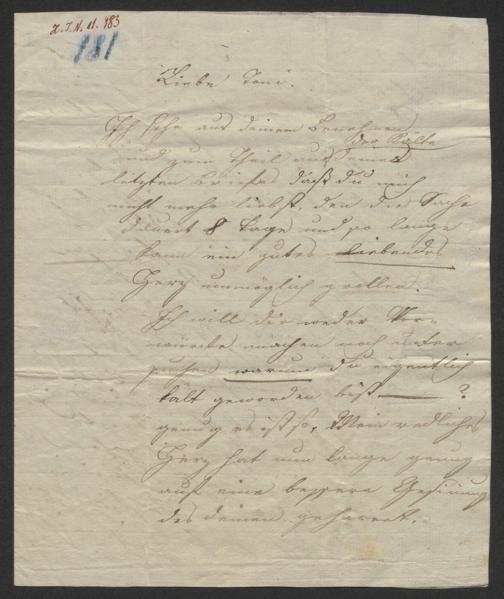 Z.I.N. 11.483
181
Liebe Toni.
Ich sehe aus deinem Benehmen
der Kälte
und zum Theil aus deinem
letzten Briefe daß du mich
nicht mehr liebst, den die Sache
dauert 8 Tage und so lange
kann ein gutes liebendes
Herz unmöglich grollen.
Ich will dir weder Vor-
würfe machen noch unter
suchen warum du eigentlich
kalt geworden bist ?
genug es ist so. Mein redliches
Herz hat nun lange genug
auf eine bessere Gesinnung
des deinen geharrt.